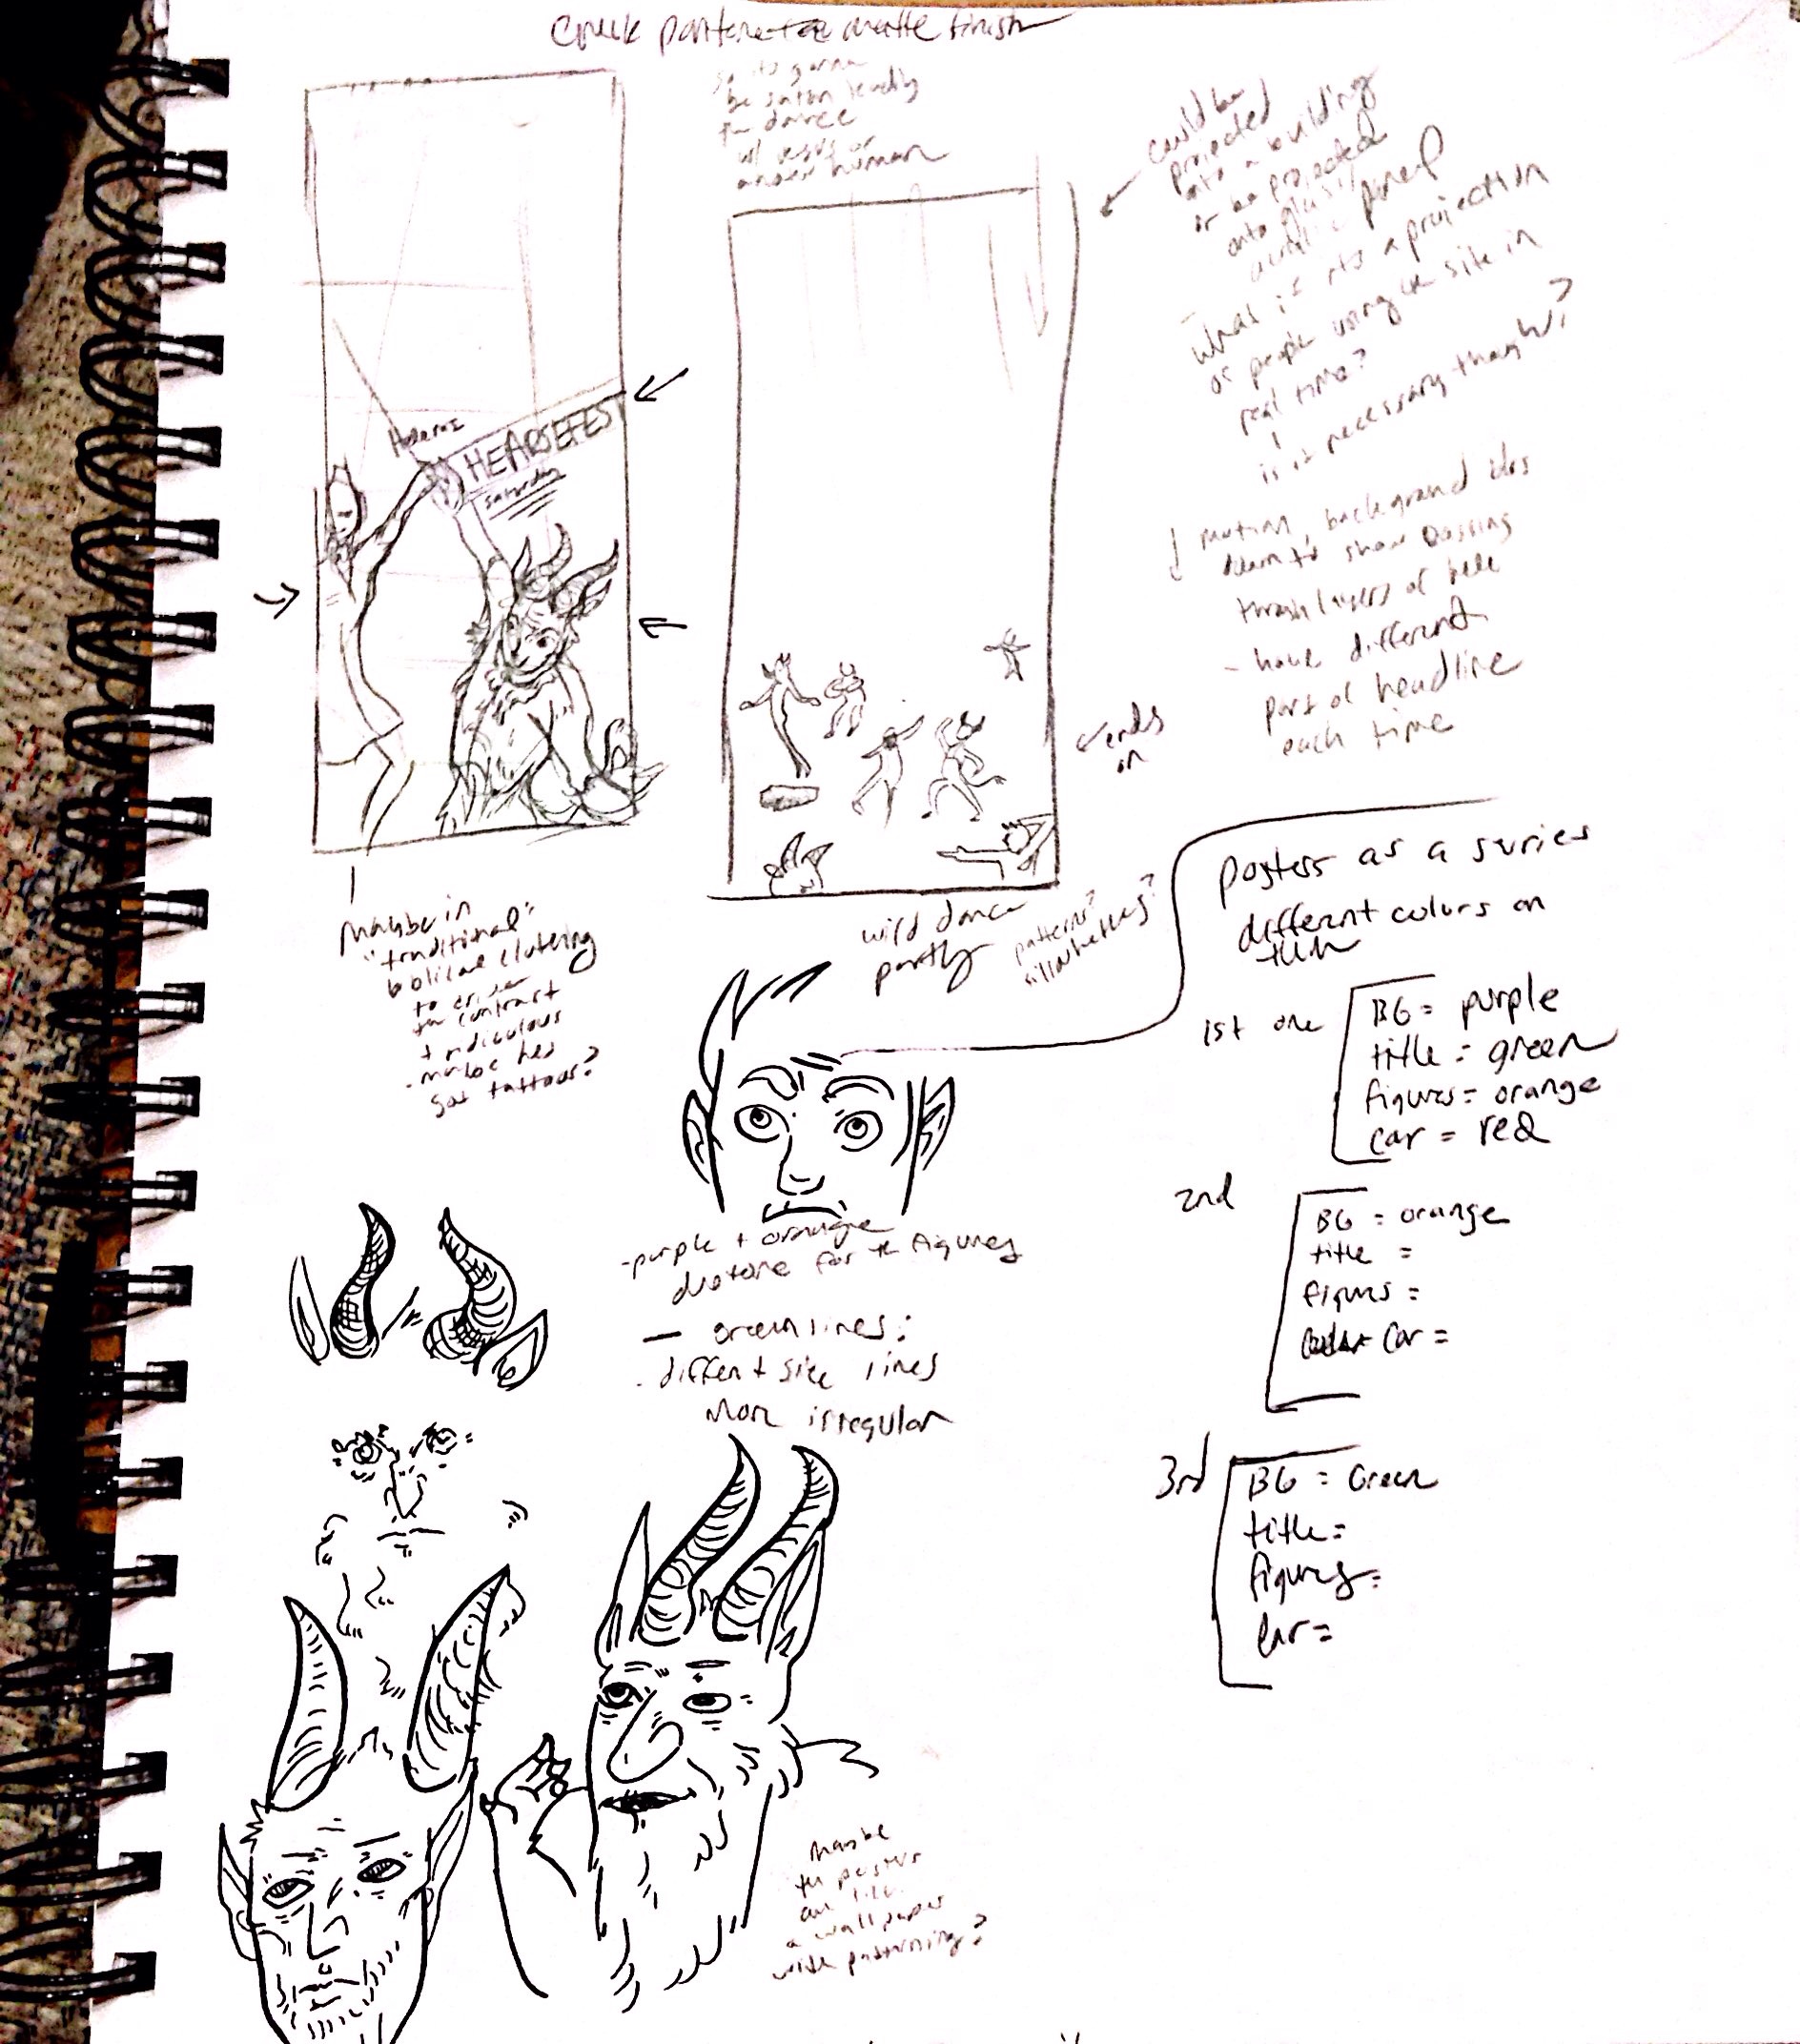 matte finish
so its gonna
be satan leading
the dance
w/ jesus or
another human
could be
projected
onto a building
or be projected
onto glass/
acrylic panel
- what if its a projection
of people using the site in
real time?
is it necessary though?
HEARSEFEST
saturday
motion, background
down to show passing
thru layers of hell
- have different
part of headline
each time
ends
on
wild dance
party
patterns?
silhouettes?
maybe in
"traditional"
biblical clothing
to
the contrast
+ ridiculous
- maybe hes
got tattoos?
posters as a series
different colors on
them
1st one
BG = purple
title = green
figures = orange
car = red
2nd
BG = orange
title =
figures =
car =
3rd
BG = Green
title =
figures =
car =
- purple + orange
duotone for the figures
— green lines:
- different size lines
more irregular
maybe
the posters
are like
a wallpaper
with patterning?